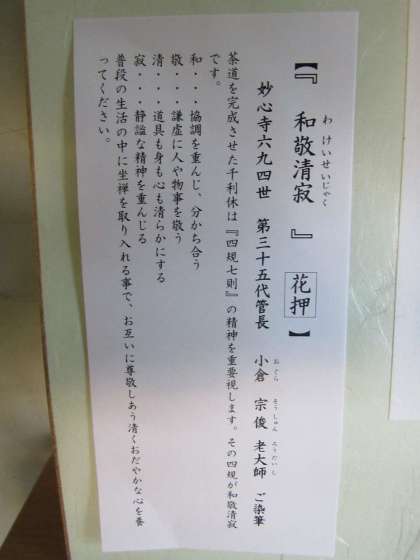 【『 和敬清寂 』 花押】
わ けいせいじゃく
妙心寺六九四世 第三十五代管長 小倉 宗俊 老大師 ご染筆
おぐら そうしゅん ろうだいし
茶道を完成させた千利休は『四規七則』の精神を重要視します。その四規が和敬清寂
です。
和・・・協調を重んじ、分かち合う
敬・・・謙虚に人や物事を敬う
清・・・道具も身も心も清らかにする
寂・・・静謐な精神を重んじる
普段の生活の中に坐禅を取り入れる事で、お互いに尊敬しあう清くおだやかな心を養
ってください。